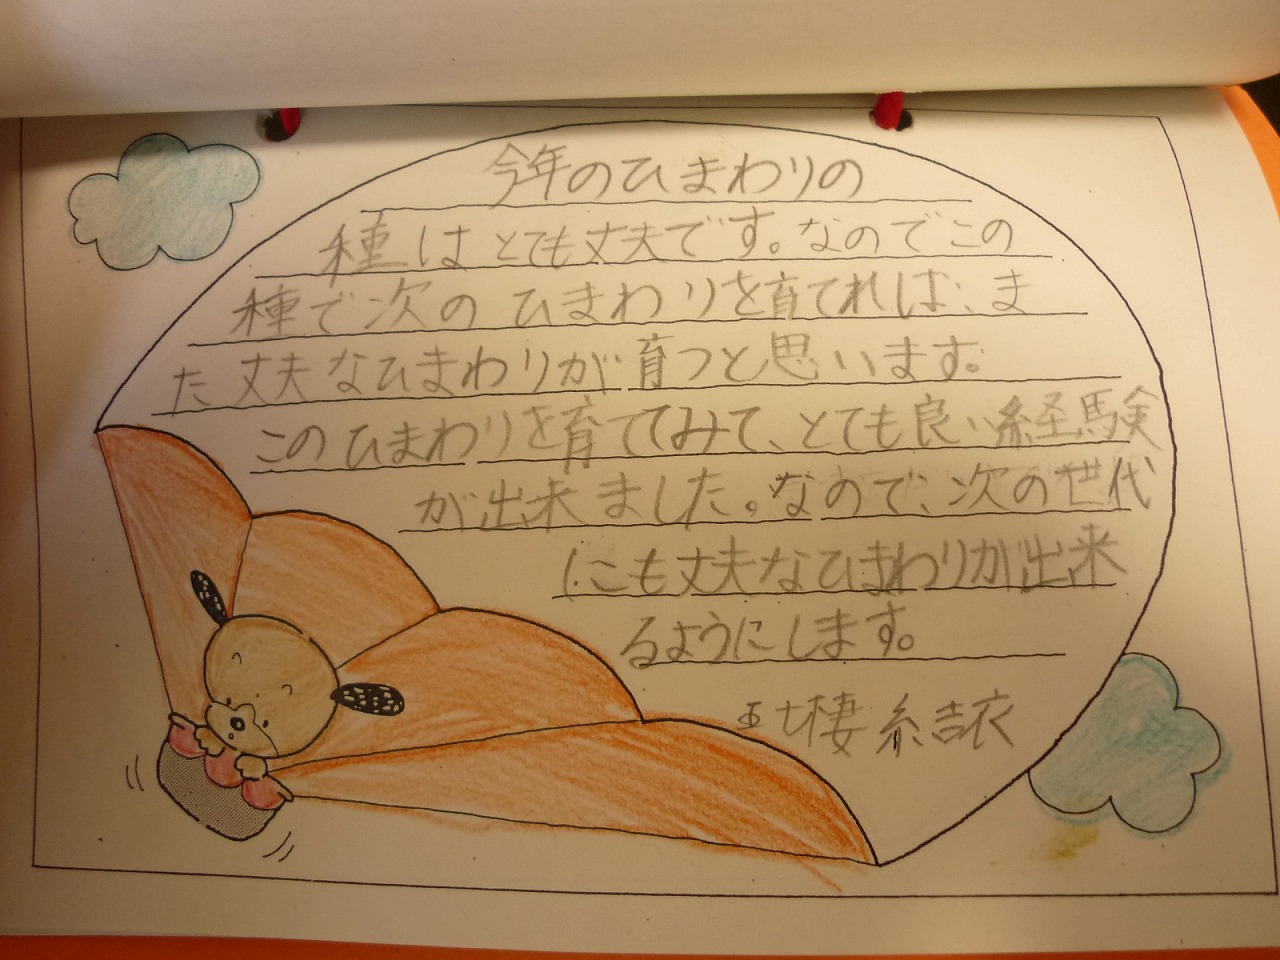 今年のひまわりの
種はとても丈夫です。なのでこの
種で次のひまわりを育てれば、ま
た丈夫なひまわりが育つと思います。
このひまわりを育ててみて、とても良い経験
が出来ました。なので、次の世代
にも丈夫なひまわりが出来
るようにします。
結衣